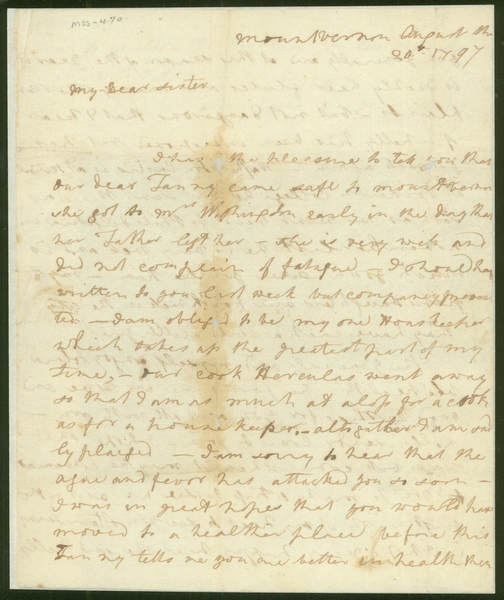 mss-4.70
mount vernon August the
20th 1797
my Dear sister
I have the pleasure to tell you that
our dear Fanny came safe to mount vernon
she got to mr Washington early in the day that
her Father left her – she is very well and
did not complain of fatague I should have
written to you last week but company preven
ted – I am obliged to be my one Housekeeper
which takes up the greatest part of my
time, – our cook Herculas went away
so that I am as much at a loss for a cook
as for a house keeper. – altogether I am sad
ly plaiged – I am sorry to hear that the
ague and fever has attacked you so soon –
I was in great hopes that you would have
moved to a healthier place before this
Fanny tells me you are better in health then